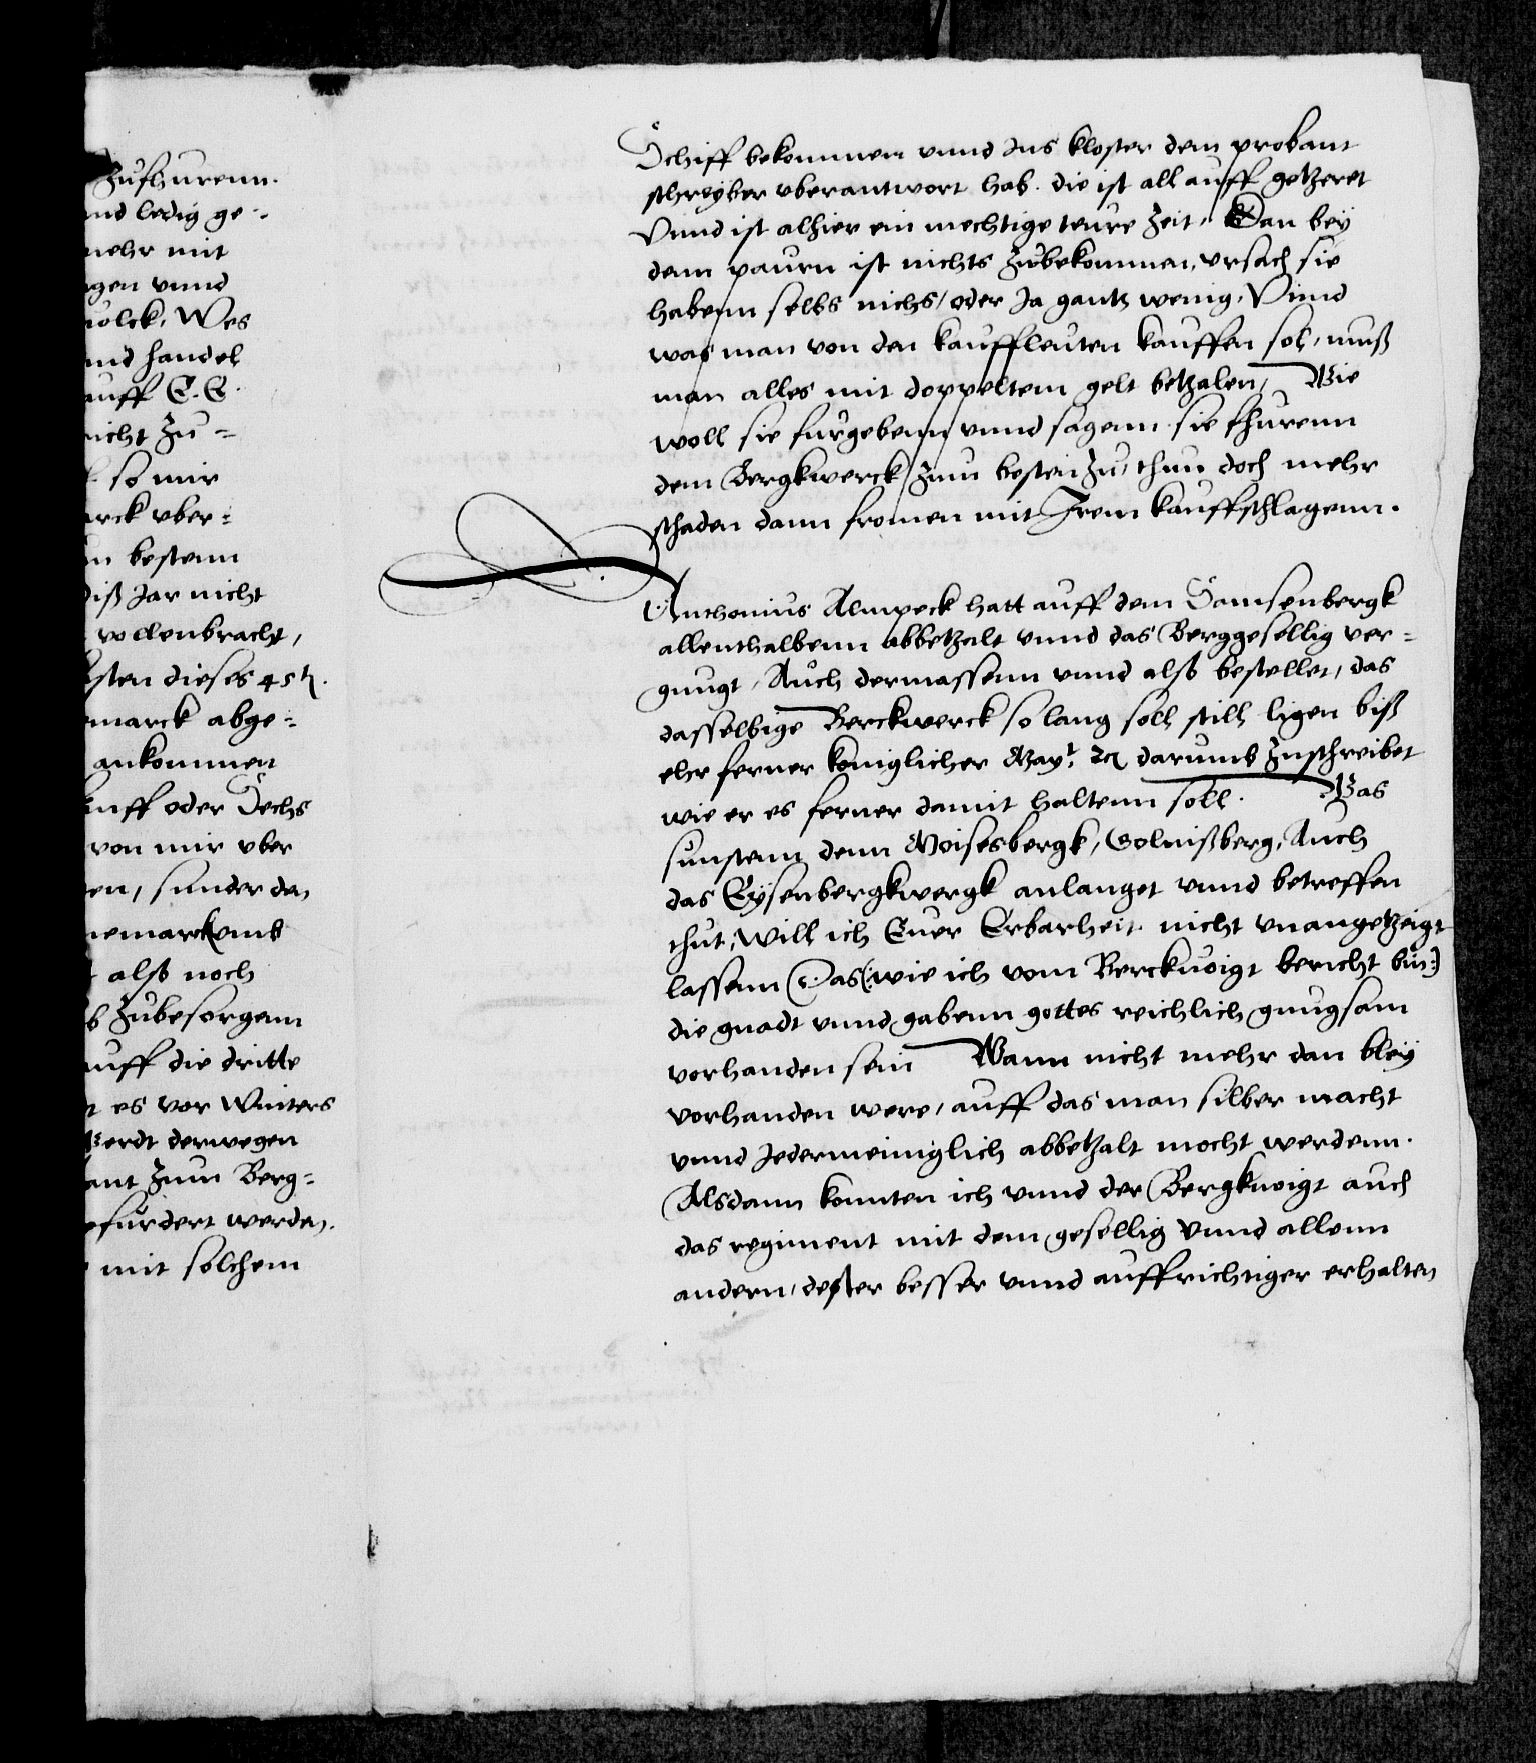 Zufhurenn.
nd ledig ge-
mehr mit
gen vnnd
uolck, Wes
nd handel
auff E. E.
nicht zu-
so mir
rck vber-
bestenn
diß Jar nicht
vollenbracht,
sten dieses 45
marck abge-
ankommen
unff oder Sechs
von mir vber
en, sunder da
nemarck
alß noch
b Zubesorgenn
auff die dritte
es vor Winters
werdt derwegen
ant zum Berg-
efurdert werden.
mit solchem
Schiff bekommen vnnd Ins kloster dem probant
schreyber vberantwort hab. die ist all auff getzeret
Vnnd ist alhier ein mechtige teure Zeit, Dan bey
dem paurn ist nichts Zubekommen, vrsach sie
habenn selbs nichs, oder Ja gantz wenig, Vnnd
was man von den kauffleuten kauffen sol, muß
man alles mit doppeltem gelt betzalen, Wie
woll sie furgebenn vnnd sagenn sie fhurenn
dem Bergkwerck zum besten zu, thun doch mehr
schaden dann fromen mit Irem kauffschlagenn.
Anthonius Alnpeck hatt auff dem Samsenbergk
allenthalbenn abbetzalt vnnd das Berggesellig ver-
gnugt, Auch dermassenn vnnd alß bestellet, das
dasselbige Berckwerck so lang soll still ligen biß
ehr ferner koniglicher Mayt. darumb zuschreibet
wie er es ferner damit haltenn soll. Was
sunstenn denn Moisesbergk, Golnißberg, Auch
das Eysenbergkwergk anlanget vnnd betreffen
thut, Will ich Euer Erbarheit nicht vnangetzeigt
lassenn Das (:wie ich vom Berckuoigt bericht bin:)
die gnadt vnnd gabenn gottes reichlich gnugsam
vorhanden sein Wann nicht mehr dan bley
vorhanden were, auff das man silber macht
vnnd Jedermeiniglich abbetzalt mocht werdenn.
Alsdann konnten ich vnnd der Bergkuoigt auch
das regiment mit dem gesellig Vnnd allenn
andern, dester besser vnnd auffrichtiger erhalten